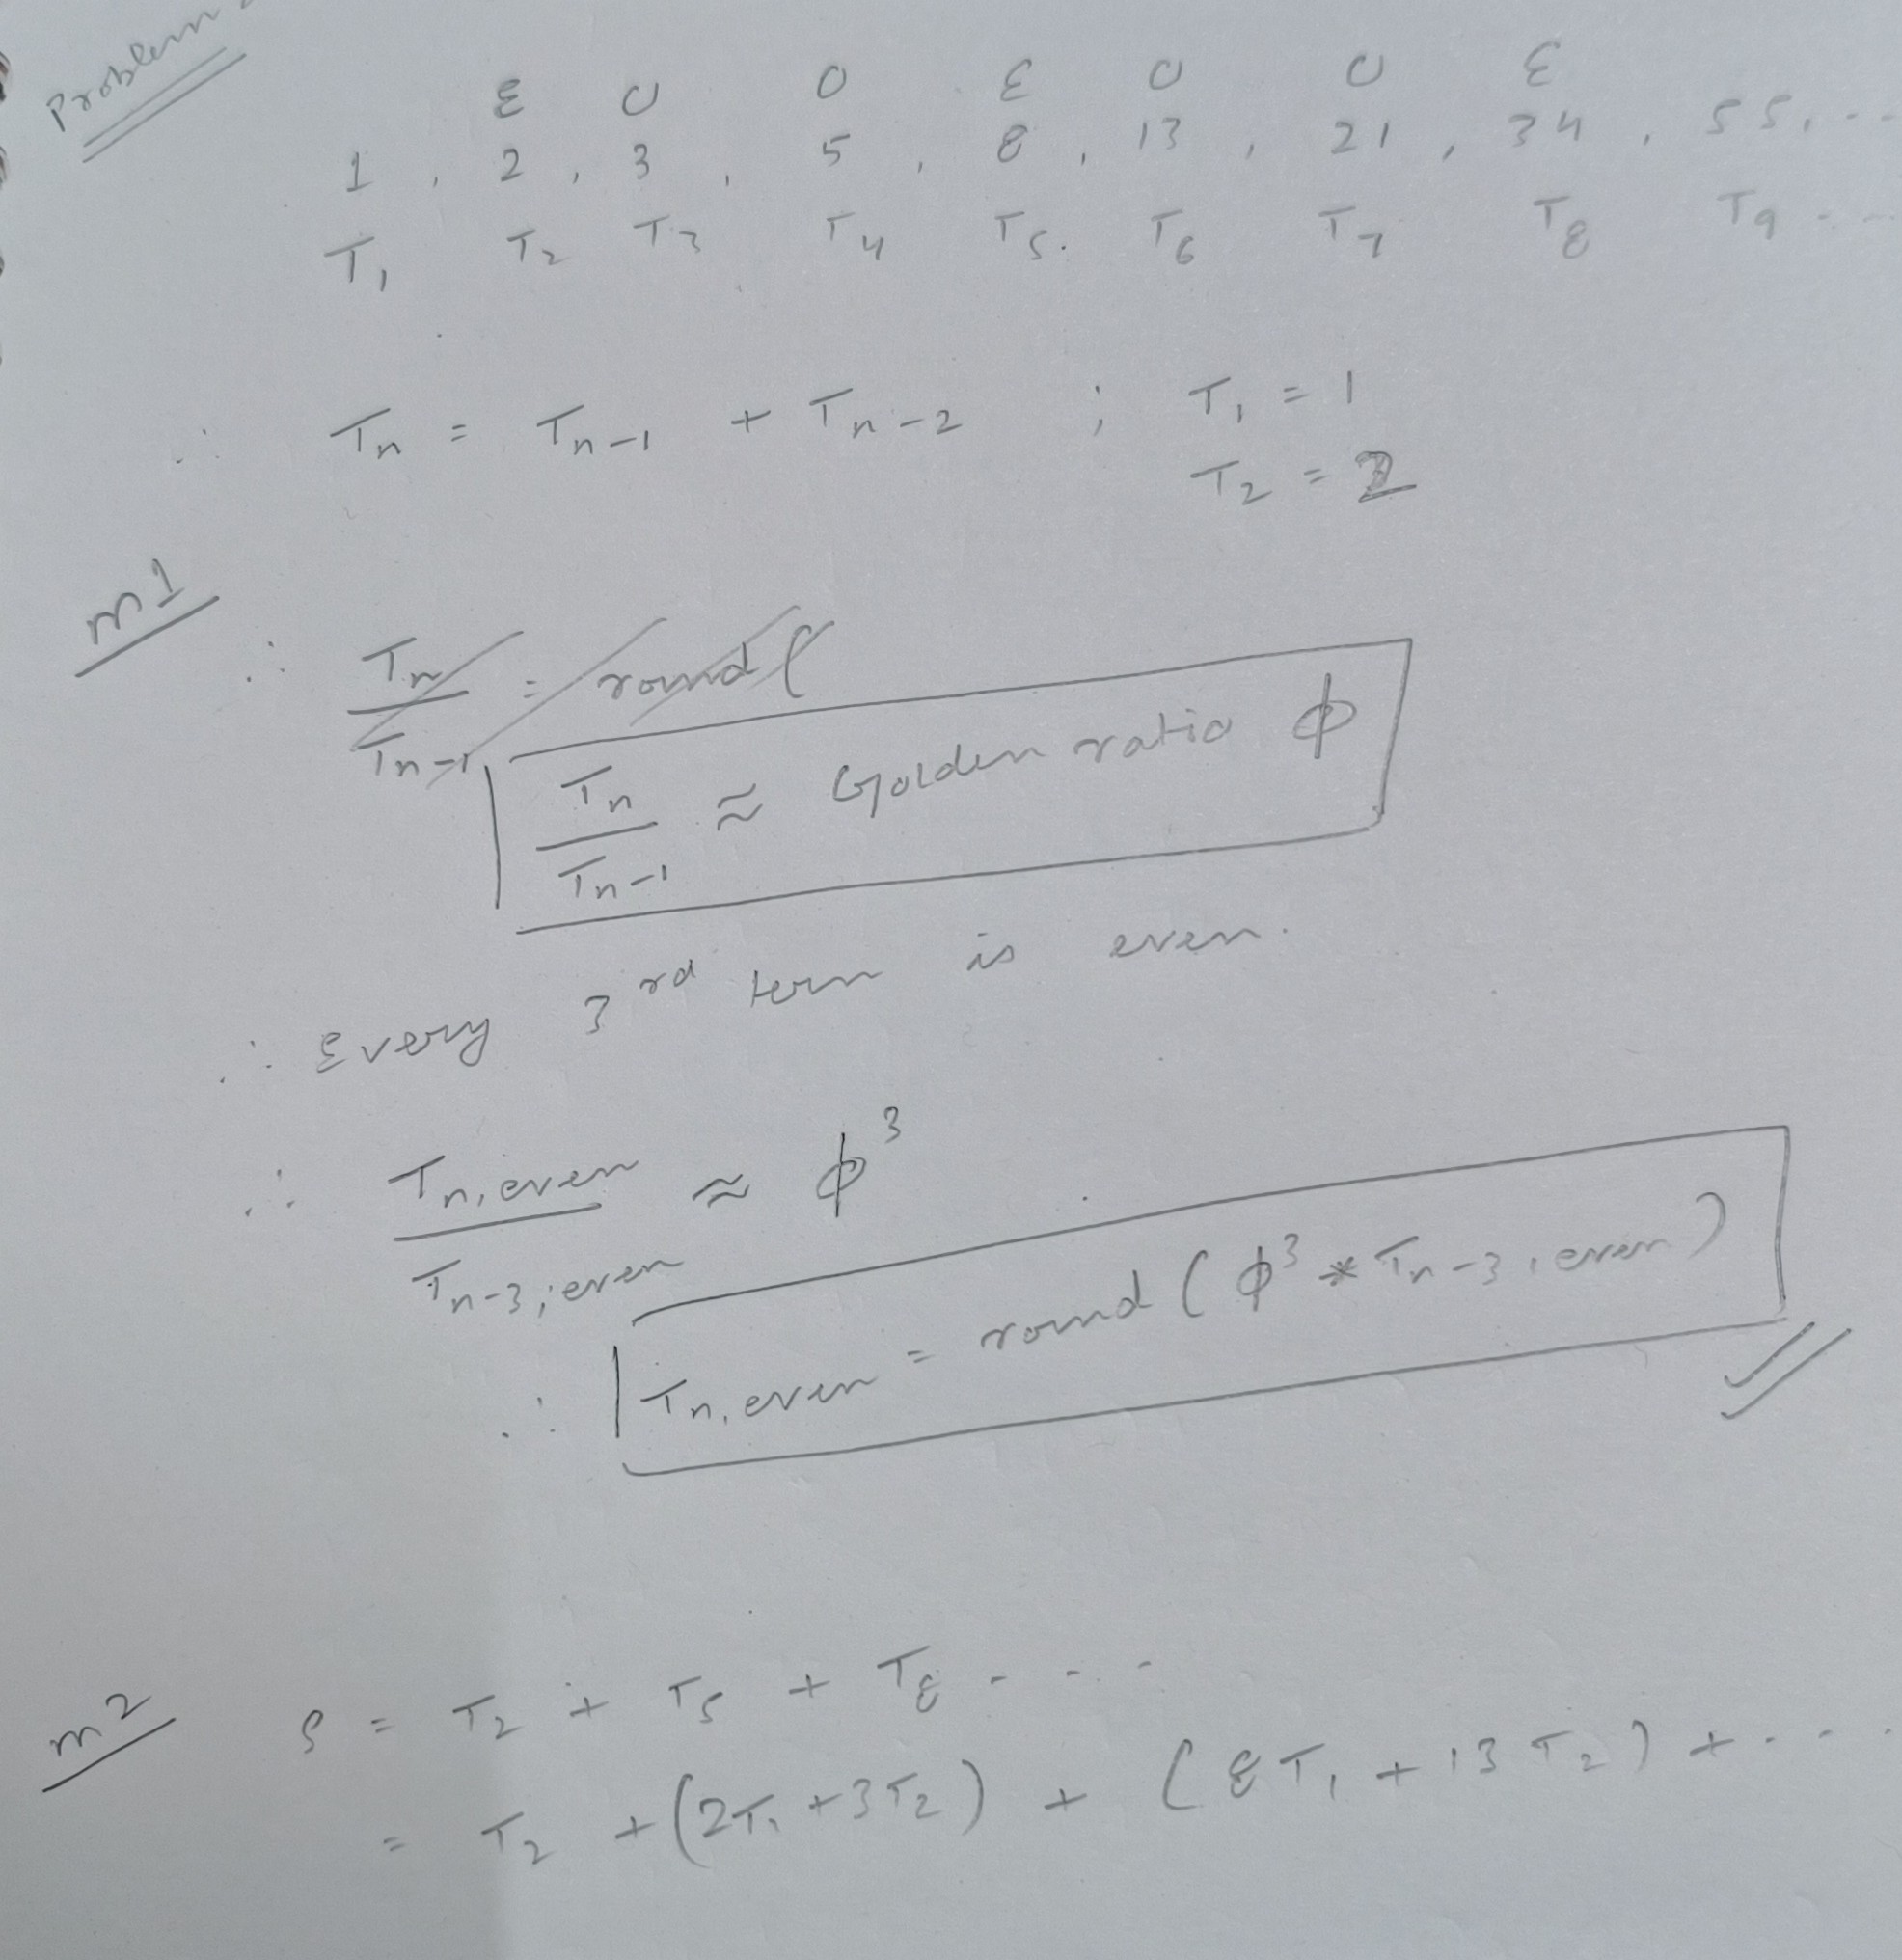 Problem
E O O E O O E
1, 2, 3, 5, 8, 13, 21, 34, 55, ...
T1 T2 T3 T4 T5. T6 T7 T8 T9 ...
∴ Tn = Tn-1 + Tn-2 ; T1 = 1
T2 = 2
m1
∴ Tn/Tn-1 = round(
Tn/Tn-1 ≈ Golden ratio ϕ
∴ Every 3rd term is even.
∴ Tn,even/Tn-3,even ≈ ϕ³
∴ Tn,even = round(ϕ³ * Tn-3,even)
m2 S = T2 + T5 + T8 - - - -
= T2 + (2T1 + 3T2) + (8T1 + 13T2) + - - - -